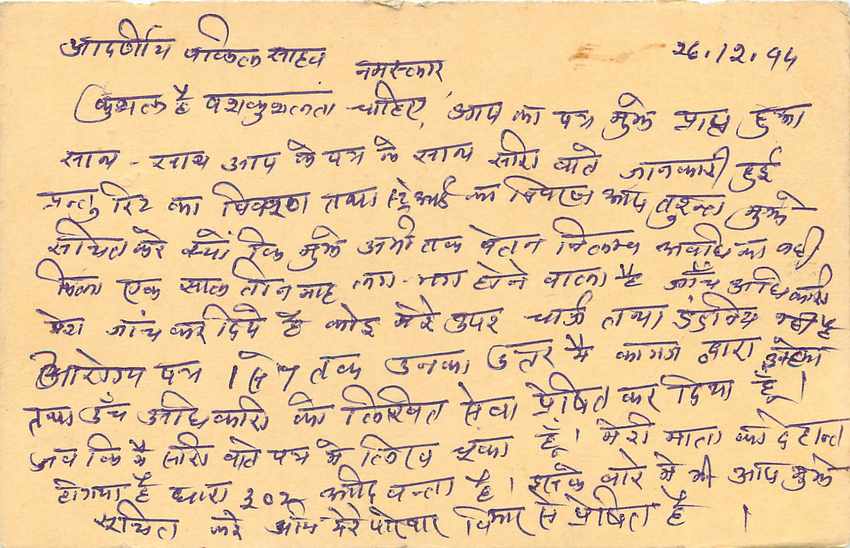 आदर्णीय वकिल साहब 26.12.94
नमस्कार
कुशल है पशकुशलता चाहिए, आप का पत्र मुझे प्राप्त हुआ
साथ - साथ आप के पत्र के साथ सारी बाते जानकारी हुई
प्रन्तु रिट का विवरण तथा स्टे आर्ड का विवरण आप तुरन्त मुझे
सूचित करे क्यों कि मुझे अभी तक वेतन निलम्ब अवधि का नही
मिला एक साल तीन माह लग-भग होने वाला है जाँच अधिकारी
मेरा जांच कर दिये है कोई मेरे उपर चार्ज तथा दंडनिय नही है
आरोप पत्र 1 से 7 तक उनका उत्तर मै कागज द्वारा
तथा उँच अधिकारी को लिखित सेवा प्रेषित कर दिया हूँ।
जब कि मै सारी बाते पत्र मे लिख चूका हूँ। मेरी माता का देहान्त
होगया है धारा 302 बन्ता है। इसके बारे मे भी आप मुझे
सूचित करे और मेरे प्रेषित है ।